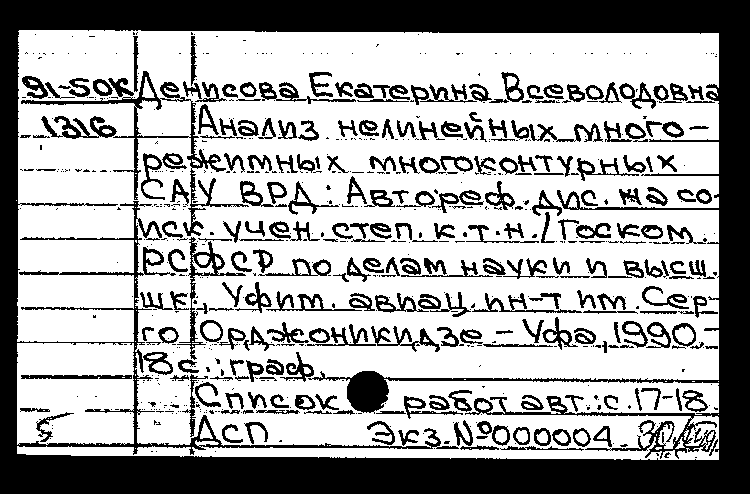 91-50к Денисова, Екатерина Всеволодовна
1316 Анализ нелинейных много-
режимных многоконтурных
САУ ВРД : Автореф. дис. на со-
иск. учен. степ. к.т.н. / Госком.
РСФСР по делам науки и высш.
шк., Уфим. авиац. ин-т им. Сер-
го Орджоникидзе – Уфа, 1990.–
18 с. : граф.
Список работ авт.: с. 17-18.
5 ДСП. Экз. №000004.